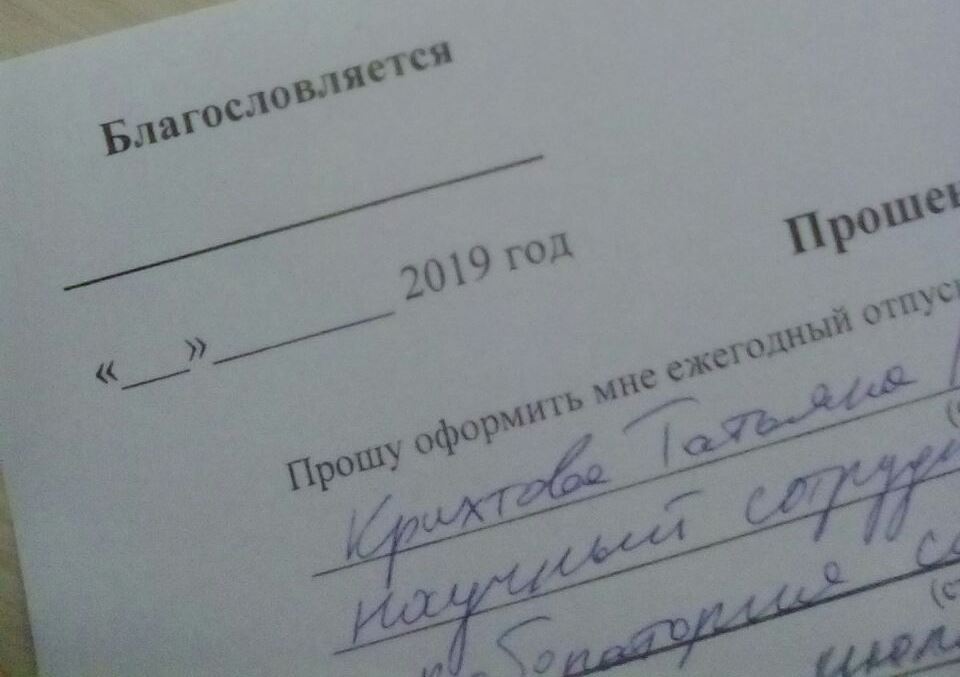 Благословляется
«___»__________ 2019 год
Прошен
Прошу оформить мне ежегодный отпуск
Крихтова Татьяна
научный сотрудн
лаборатория